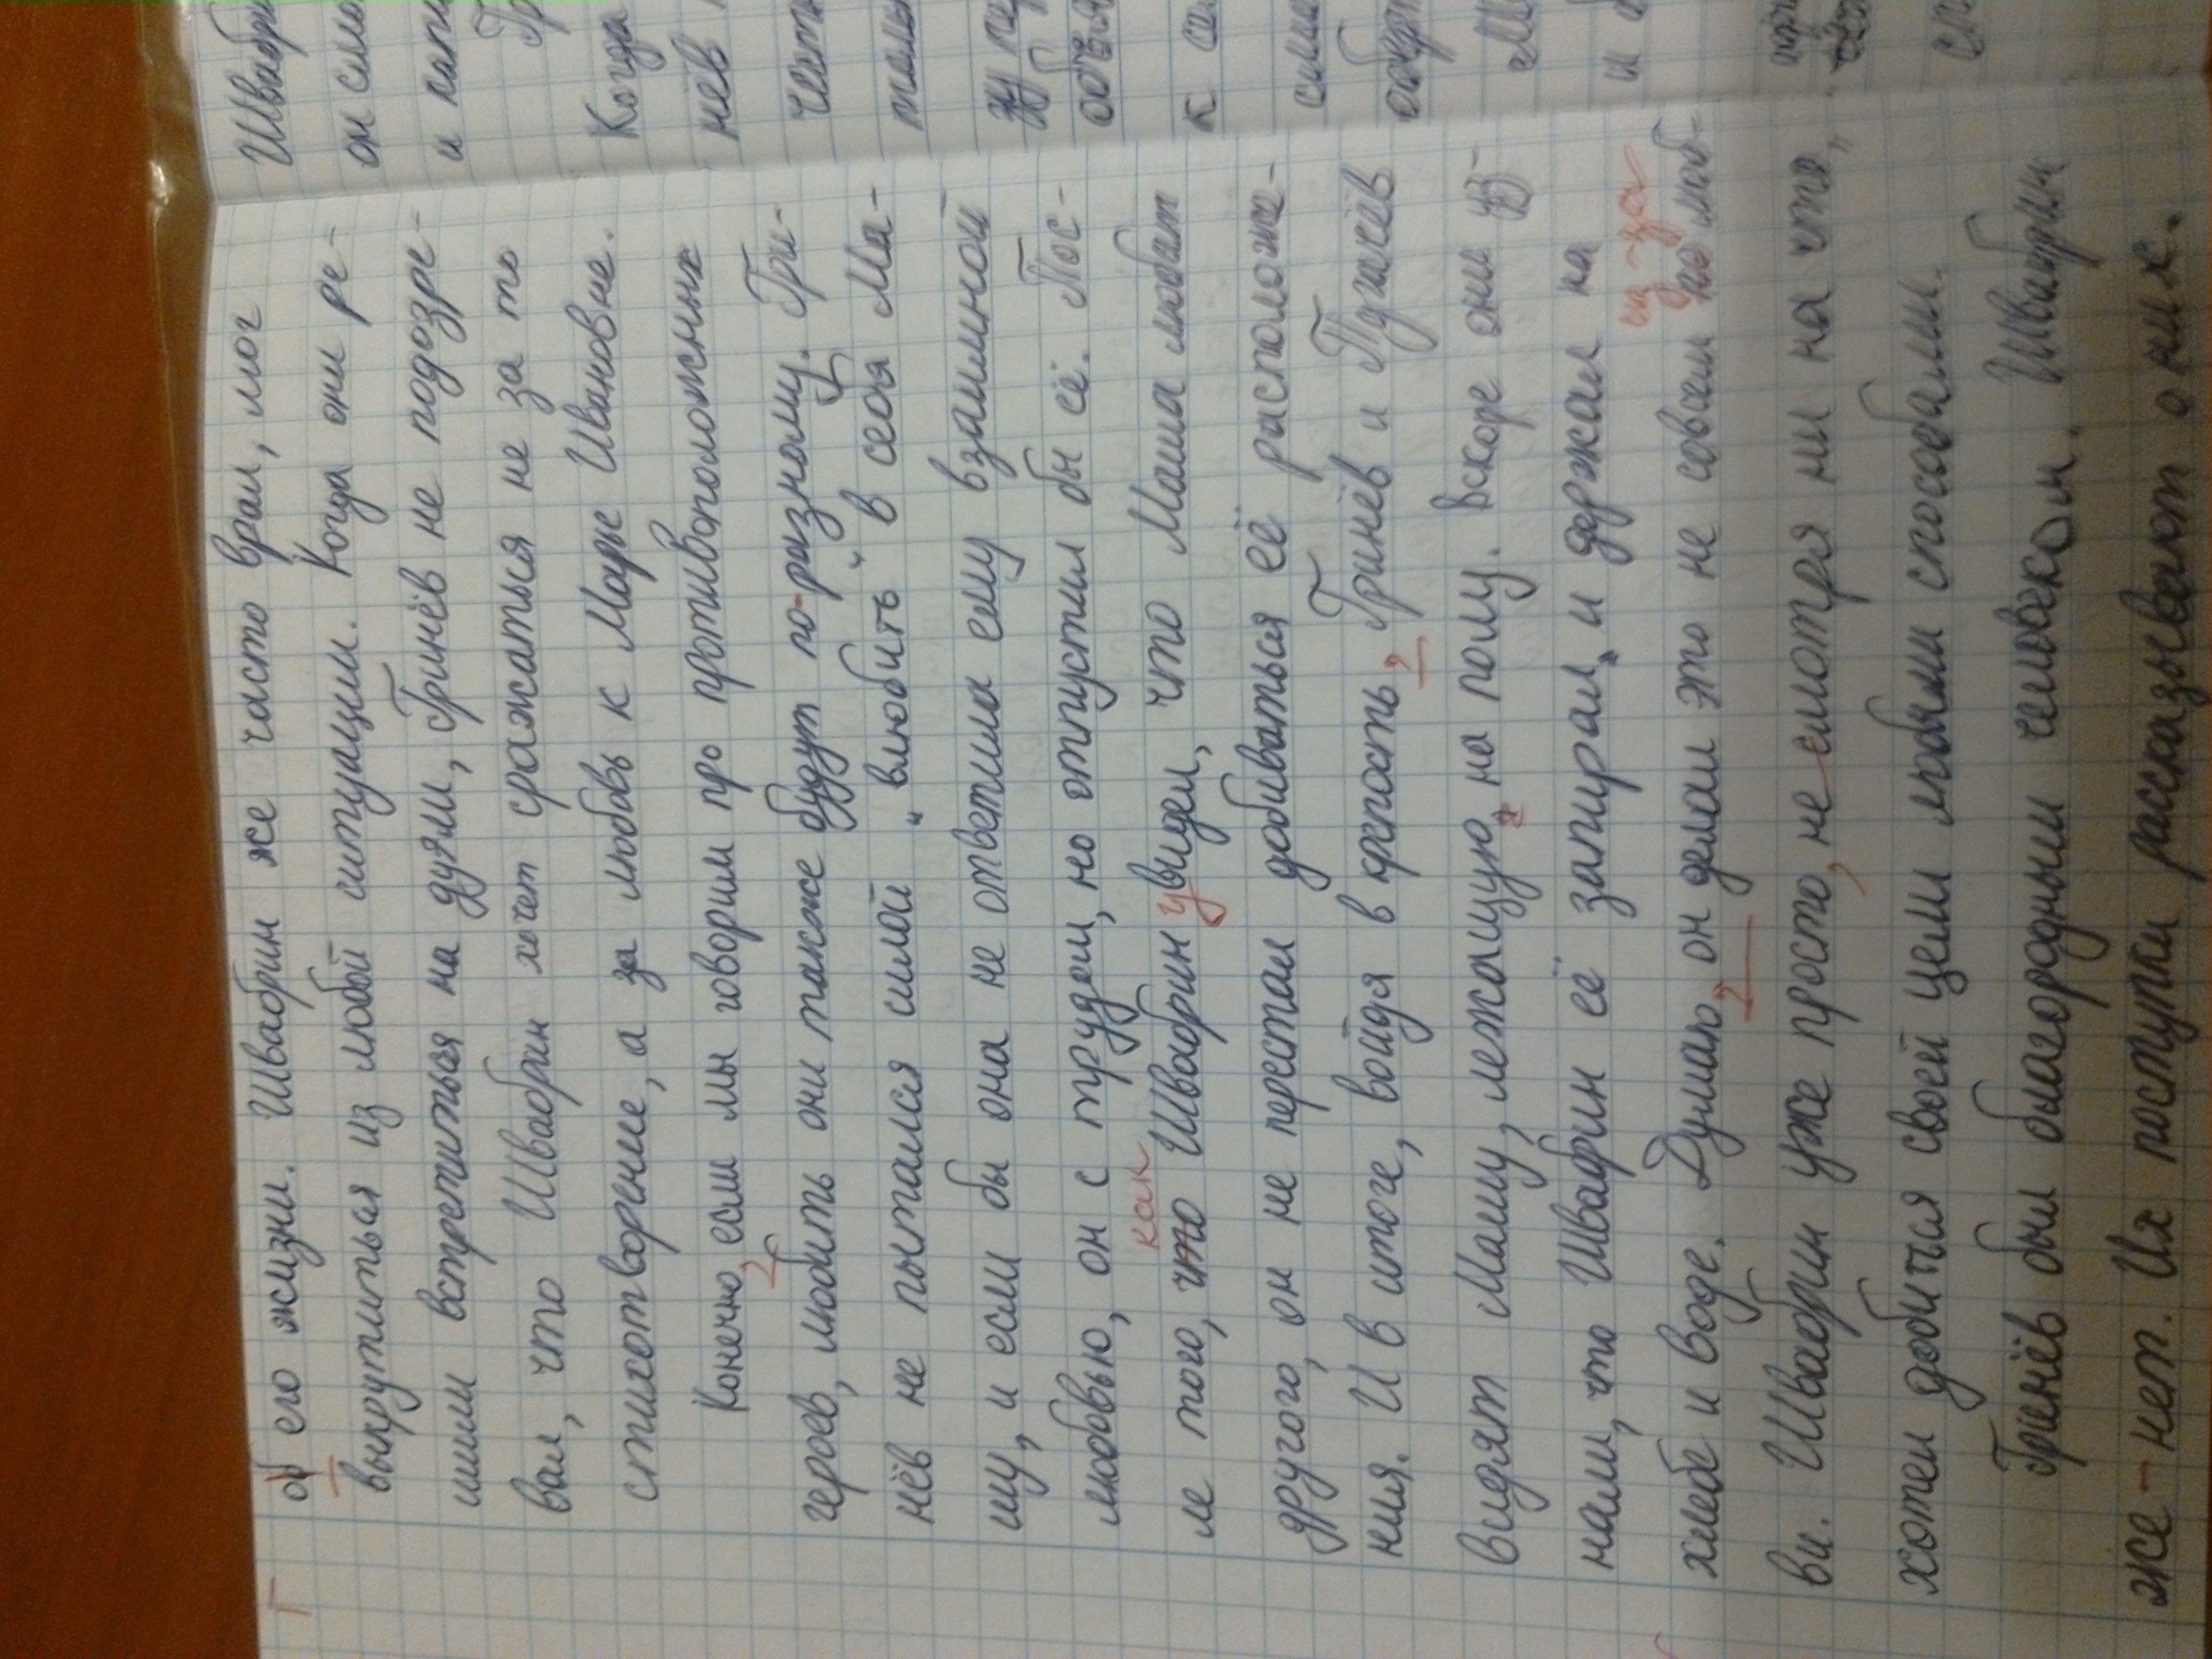 об его жизни. Швабрин же часто врал, мог
выкрутиться из любой ситуации. Когда они ре-
шили встретиться на дуэли, Гринёв не подозре-
вал, что Швабрин хочет сражаться не за то
стихотворение, а за любовь к Марье Ивановне.
Конечно, если мы говорим про противоположных
героев, любить они также будут по-разному. Гри-
нёв не пытался силой "влюбить" в себя Ма-
шу, и если бы она не ответила ему взаимной
любовью, он с трудом, но отпустил бы её. Пос-
как
ле того, что Швабрин увидел, что Маша любит
другого, он не перестал добиваться её расположе-
ния. И в итоге, войдя в крепость, Гринёв и Пугачёв
видят Машу, лежащую на полу. Вскоре они уз-
нали, что Швабрин её запирал и держал на
из-за
хлебе и воде. Думаю, он делал это не совсем по люб-
ви. Швабрин уже просто, не смотря ни на что,
хотел добиться своей цели любыми способами.
Гринёв был благородным человеком. Швабрин
же - нет. Их поступки рассказывают о них.
Швабри
он
и
Когда
нёв
к
и